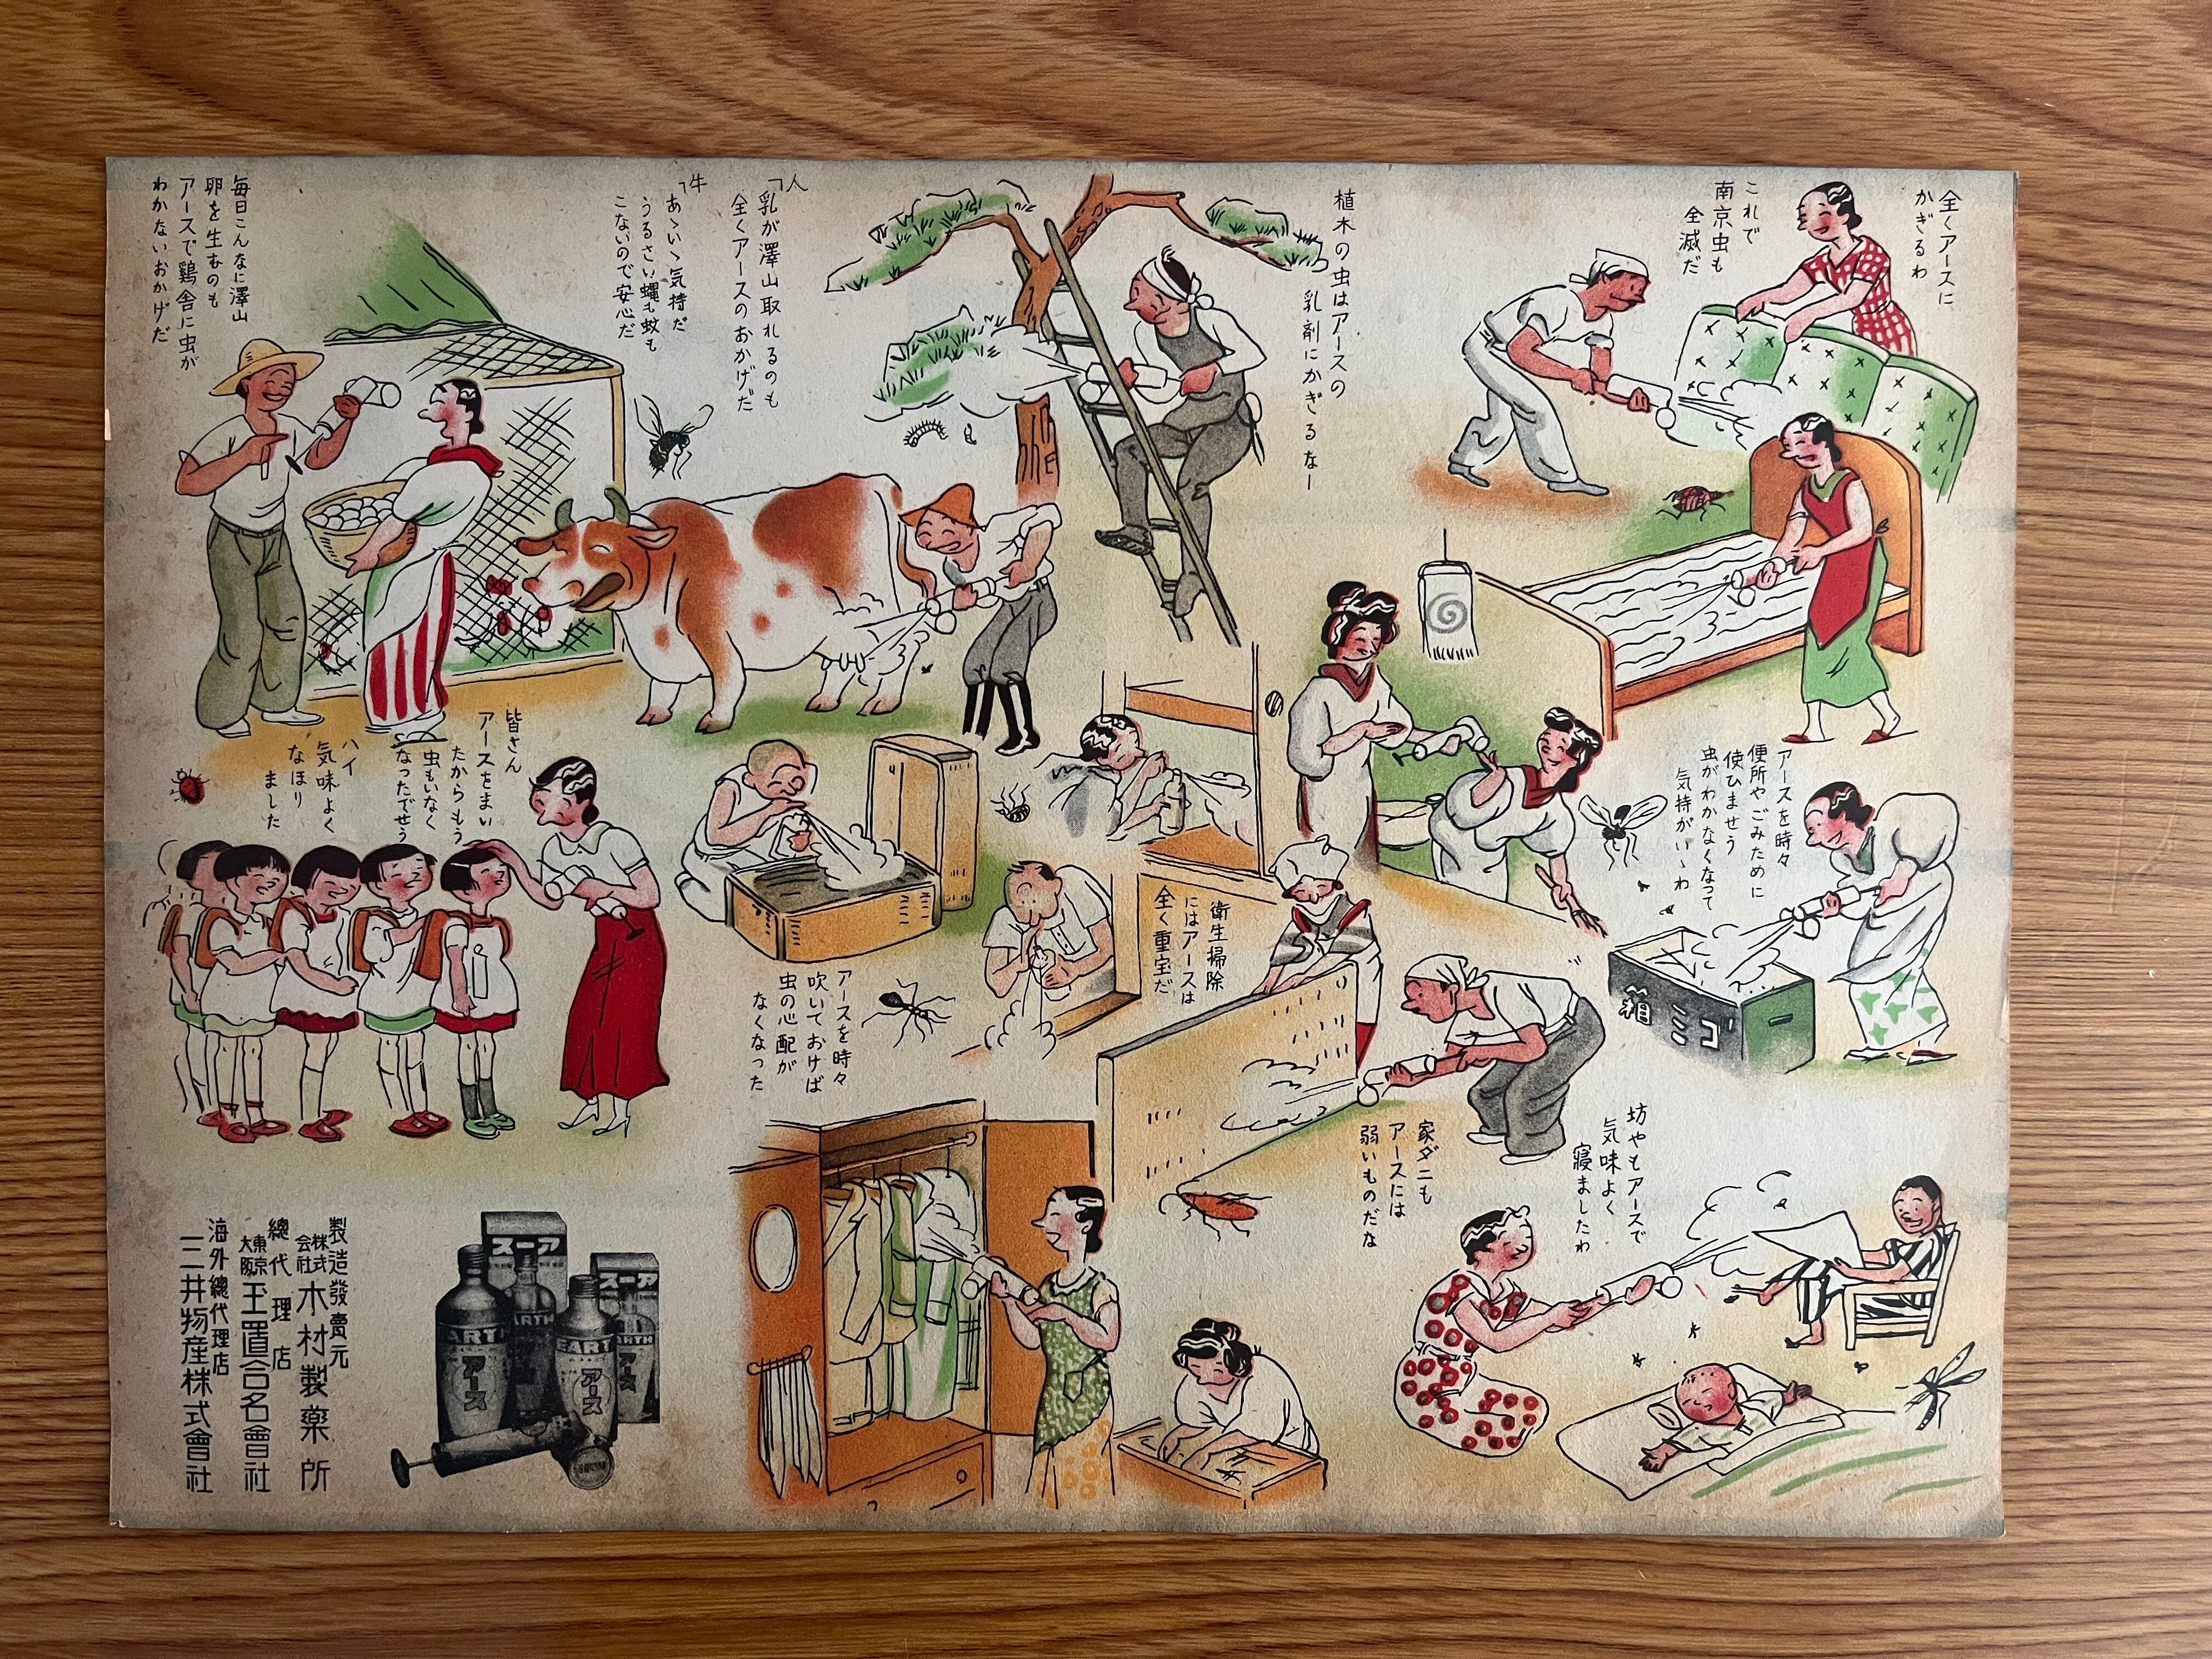 全くアースに
かぎるわ
これで
南京虫も
全滅だ
植木の虫はアースの
乳剤にかぎるなー
人
「乳が澤山取れるのも
全くアースのおかげだ
牛
「あゝいゝ気持だ
うるさい蝿も蚊も
こないので安心だ
毎日こんなに澤山
卵を生むのも
アースで鶏舎に虫が
わかないおかげだ
アースを時々
便所やごみために
使ひませう
虫がわかなくなつて
気持がいゝわ
ゴミ箱
衛生掃除
にはアースは
全く重宝だ
皆さん
アースをまい
たからもう
虫もいなく
なつたでせう
ハイ
気味よく
なほり
ました
アースを時々
吹いておけば
虫の心配が
なくなつた
家ダニも
アースには
弱いものだな
坊やもアースで
気味よく
寝ましたわ
アース
アース
EARTH
アース
EARTH
アース
製造發賣元
株式会社 木村製薬所
總代理店
東京 大阪 玉置合名會社
海外總代理店
三井物産株式會社